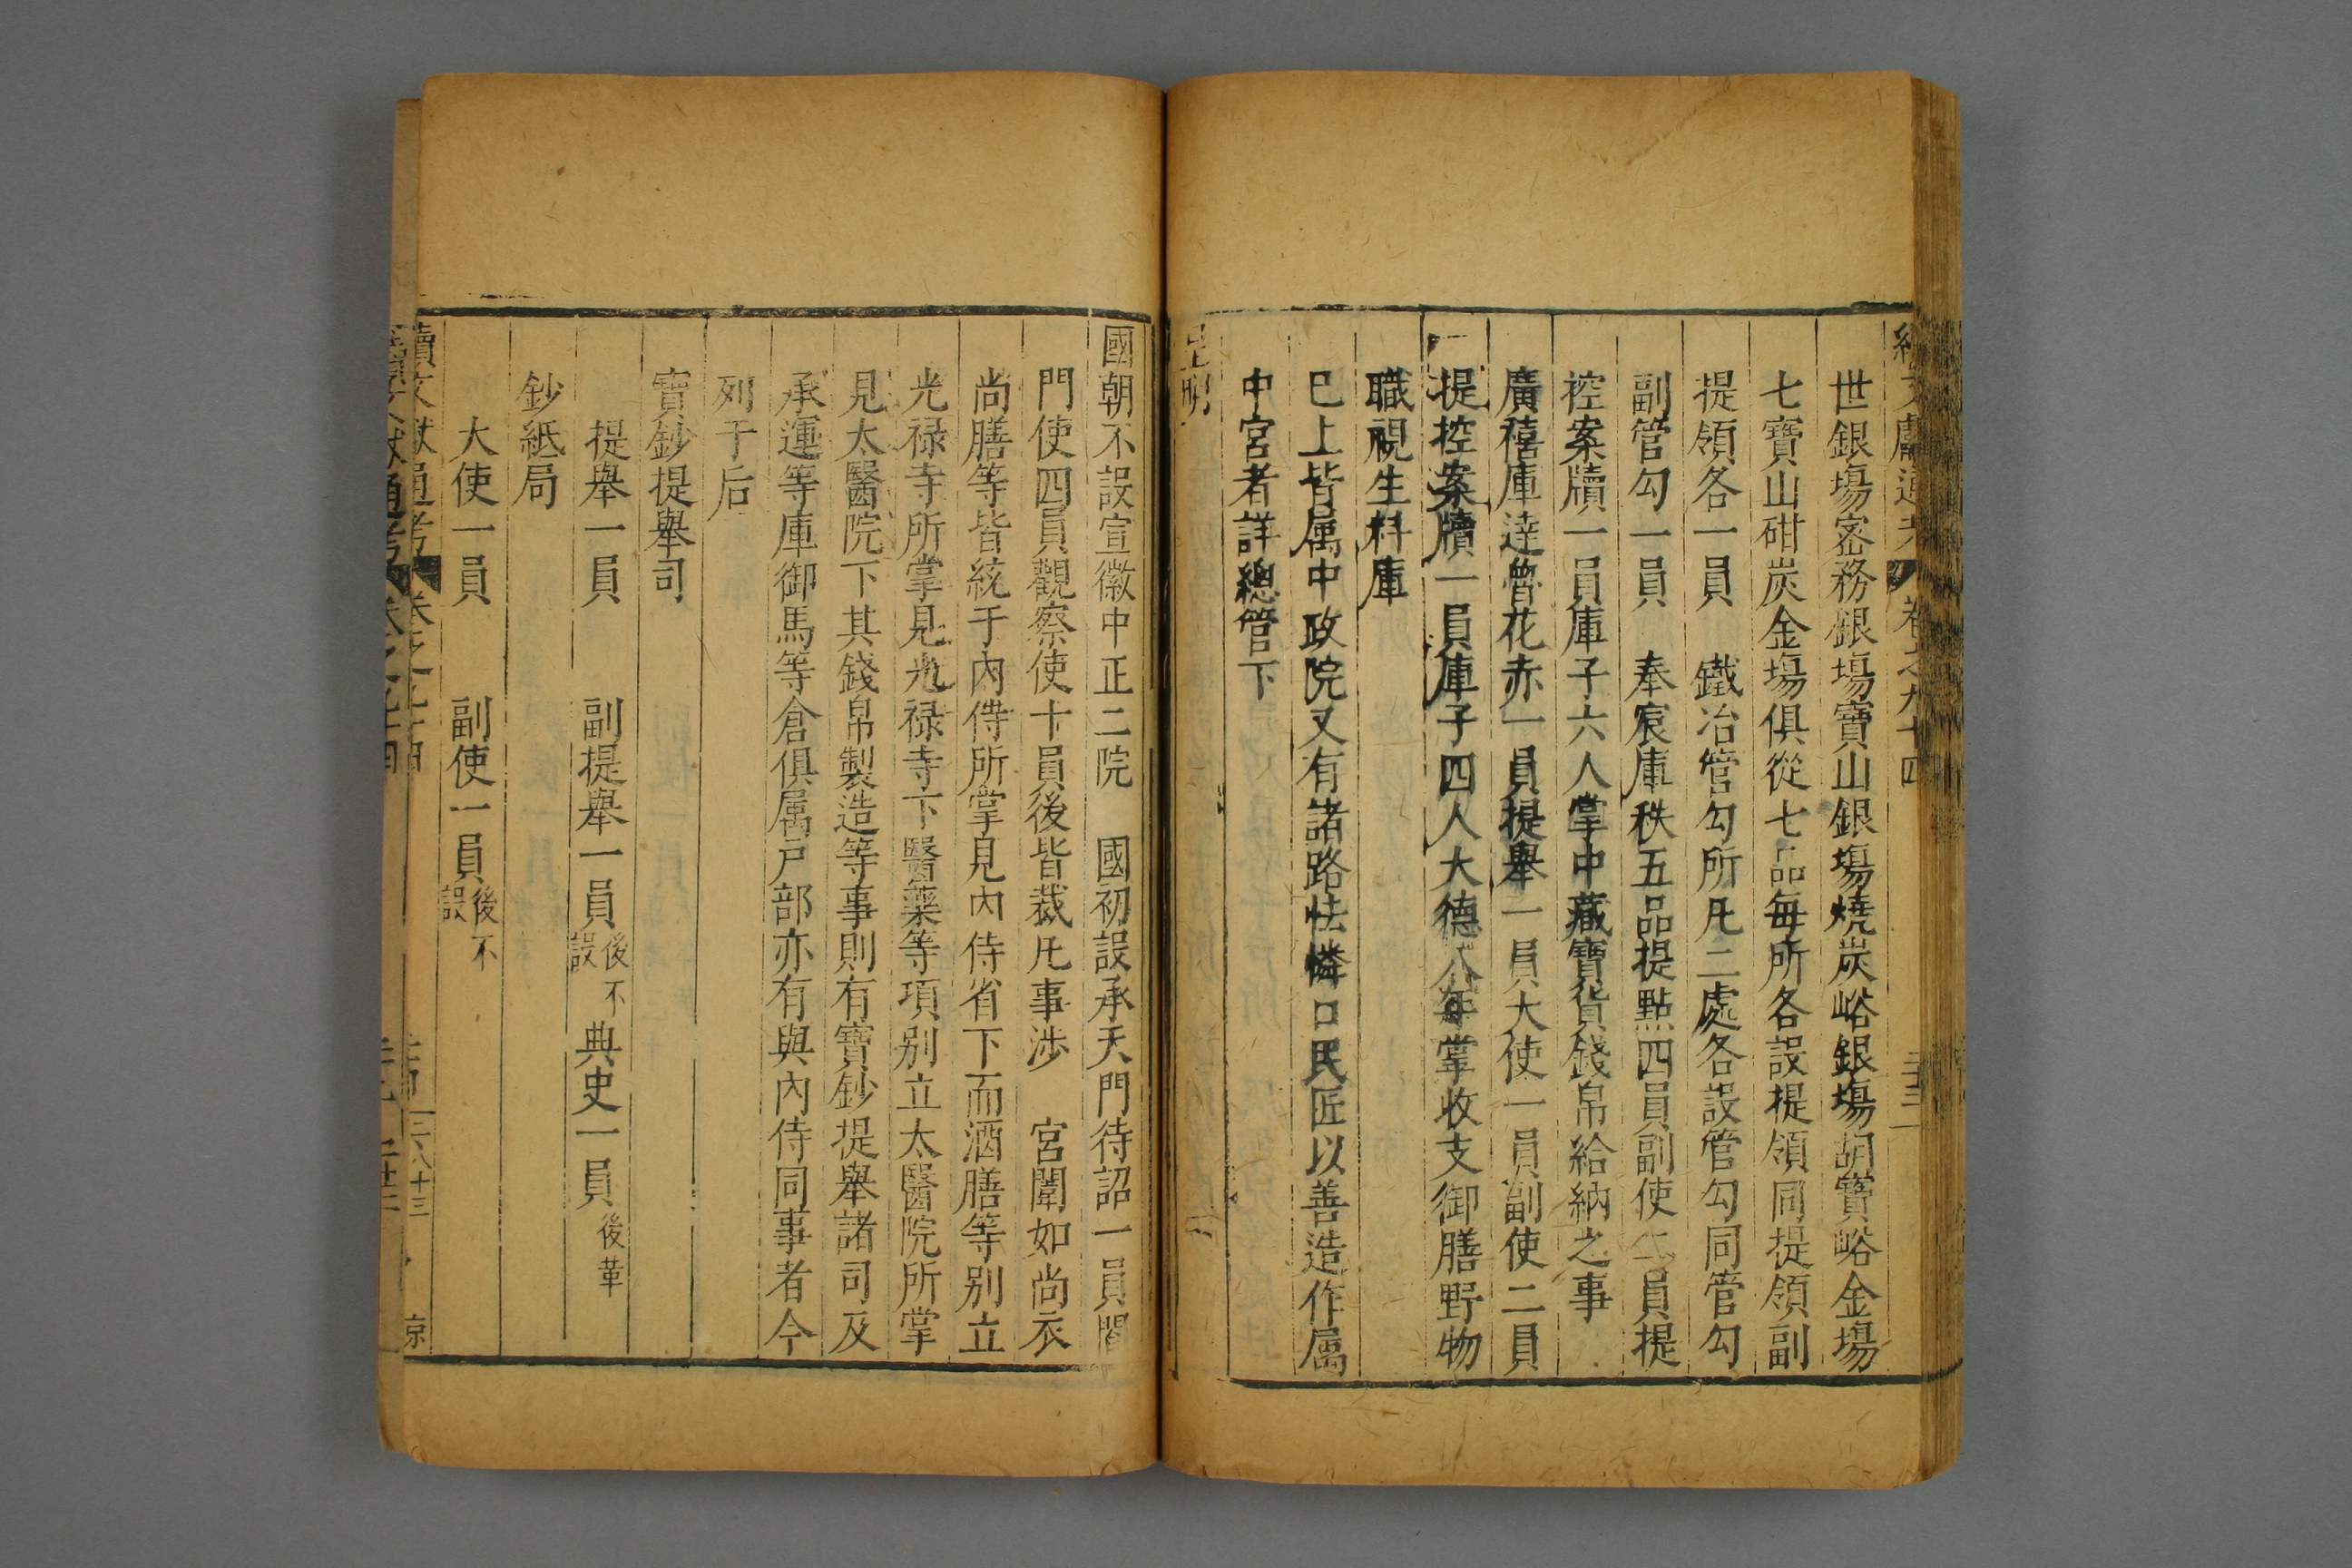 續文獻通考 卷之九十四 三十三
世銀場窑務銀場寶山銀場燒炭峪銀場胡寶峪金場
七寶山矿炭金場俱從七品每所各設提領同提領副
提領各一員 鐵冶管勾所凡二處各設管勾同管勾
副管勾一員 奉宸庫秩五品提點四員副使二員提
控案牘一員庫子六人掌中藏寶貨錢帛給納之事
廣禧庫達魯花赤一員提舉一員大使一員副使二員
提控案牘一員庫子四人大德八年掌收支御膳野物
職視生料庫
已上皆属中政院又有諸路怯憐口民匠以善造作属
中宮者詳總管下
皇明
國朝不設宣徽中正二院 國初設承天門待詔一員閣
門使四員觀察使十員後皆裁凡事涉 宮闈如尚衣
尚膳等皆統于內侍所掌見內侍省下而酒膳等别立
光禄寺所掌見光禄寺下醫藥等項别立太醫院所掌
見太醫院下其錢帛製造等事則有寶鈔提舉諸司及
承運等庫御馬等倉俱属户部亦有與內侍同事者今
列于后
寶鈔提舉司
提舉一員 副提舉一員後不設 典史一員後革
鈔紙局
大使一員 副使一員後不設
續文獻通考 卷之九十四